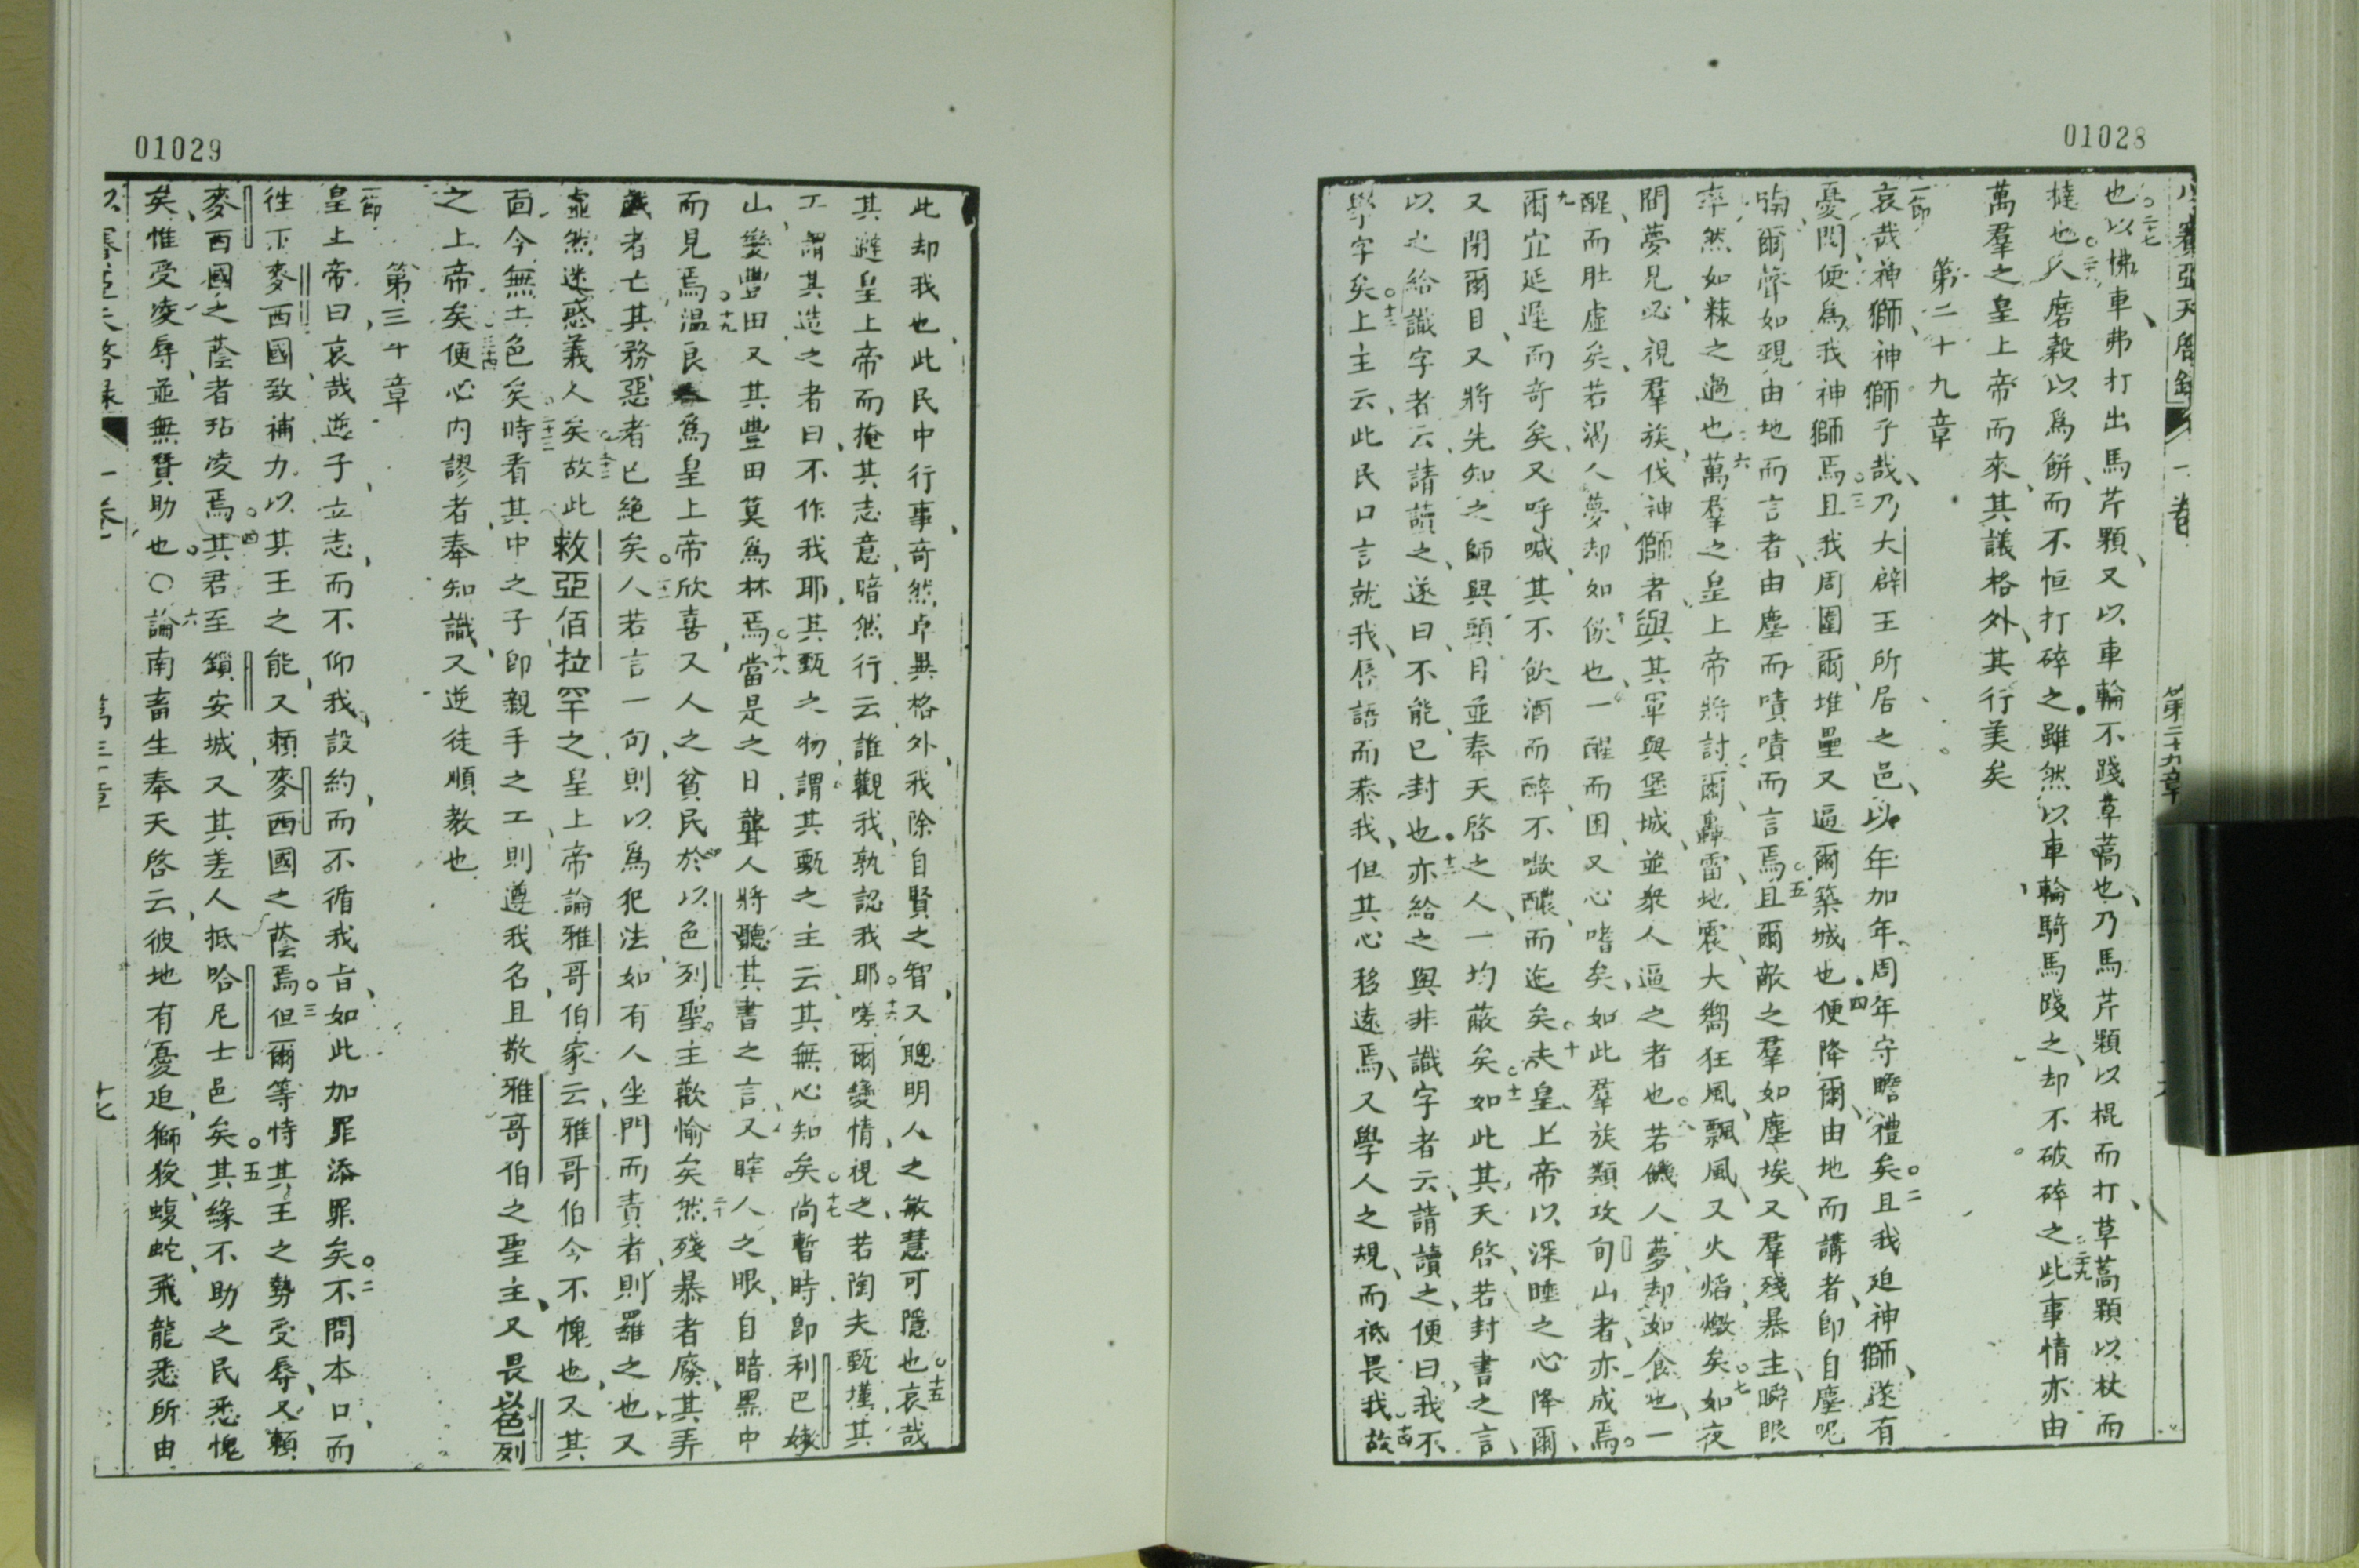 01028
以賽亞天啓錄 一卷 第二十九章
也以怫車弗打出馬芹顆又以車輪不踐草蒿也乃馬芹顆以棍而打草蒿顆以杖而
撻也人磨穀以爲餅而不恒打碎之雖然以車輪騎馬踐之却不破碎之此事情亦由
萬羣之皇上帝而來其議格外其行美矣
第二十九章
哀哉神獅神獅乎哉乃大辟王所居之邑以年加年周年守瞻禮矣且我廹神獅遂有
憂悶便爲我神獅焉且我周圍爾堆壘又逼爾築城也便降爾由地而講者卽自塵呢
喃爾聲如覡由地而言者由塵而嘖嘖而言焉且爾敵之羣如塵埃又羣殘暴主瞬眼
率然如糠之過也萬羣之皇上帝將討爾轟雷地震大嚮狂風飄風又火焰燬矣如夜
間夢見必視羣族伐神獅者與其軍與堡城並衆人逼之者也若饑人夢却如食也一
醒而肚虛矣若渴人夢却如飲也一醒而困又心嗜矣如此羣族類攻旬山者亦成焉
爾宜延遲而奇矣又呼喊其不飲酒而醉不歠醲而迤矣夫皇上帝以深睡之心降爾
又閉爾目又將先知之師與頭目並奉天啓之人一均蔽矣如此其天啓若封書之言
以之給識字者云請讀之遂曰不能已封也亦給之與非識字者云請讀之便曰我不
學字矣上主云此民口言就我唇語而恭我但其心移遠焉又學人之規而祗畏我故
01029
此却我也此民中行事奇然卓異格外我除自賢之智又聰明人之敏慧可隱也哀哉
其避皇上帝而掩其志意暗然行云誰觀我孰認我耶嗟爾變情視之若陶夫甄墐其
工謂其造之者曰不作我耶其甄之物謂其甄之主云其無心知矣尚暫時卽利巴嫩
山變豐田又其豐田算爲林焉當是之日聾人將聽其書之言又眸人之眼自暗黑中
而見焉溫良爲皇上帝欣喜又人之貧民於以色列聖主歡愉矣然殘暴者廢其弄
戲者亡其務惡者已絕矣人若言一句則以爲犯法如有人坐門而責者則羅之也又
虛然迷惑義人矣故此敕亞佰拉罕之皇上帝論雅哥伯家云雅哥伯今不愧也又其
面今無土色矣時看其中之子卽親手之工則遵我名且敬雅哥伯之聖主又畏以色列
之上帝矣便心内謬者奉知識又逆徒順教也
第三十章
皇上帝曰哀哉逆子立志而不仰我設約而不循我旨如此加罪添罪矣不問本口而
徃下麥西國致補力以其王之能又賴麥西國之蔭焉但爾等恃其王之勢受辱又賴
麥西國之蔭者玷凌焉其君至鎖安城又其差人抵哈尼士邑矣其緣不助之民悉愧
矣惟受凌辱並無贊助也○論南畜生奉天啓云彼地有憂廹獅狻蝮蛇飛龍悉所由
以賽亞天啓錄 一卷 第三十章 十七